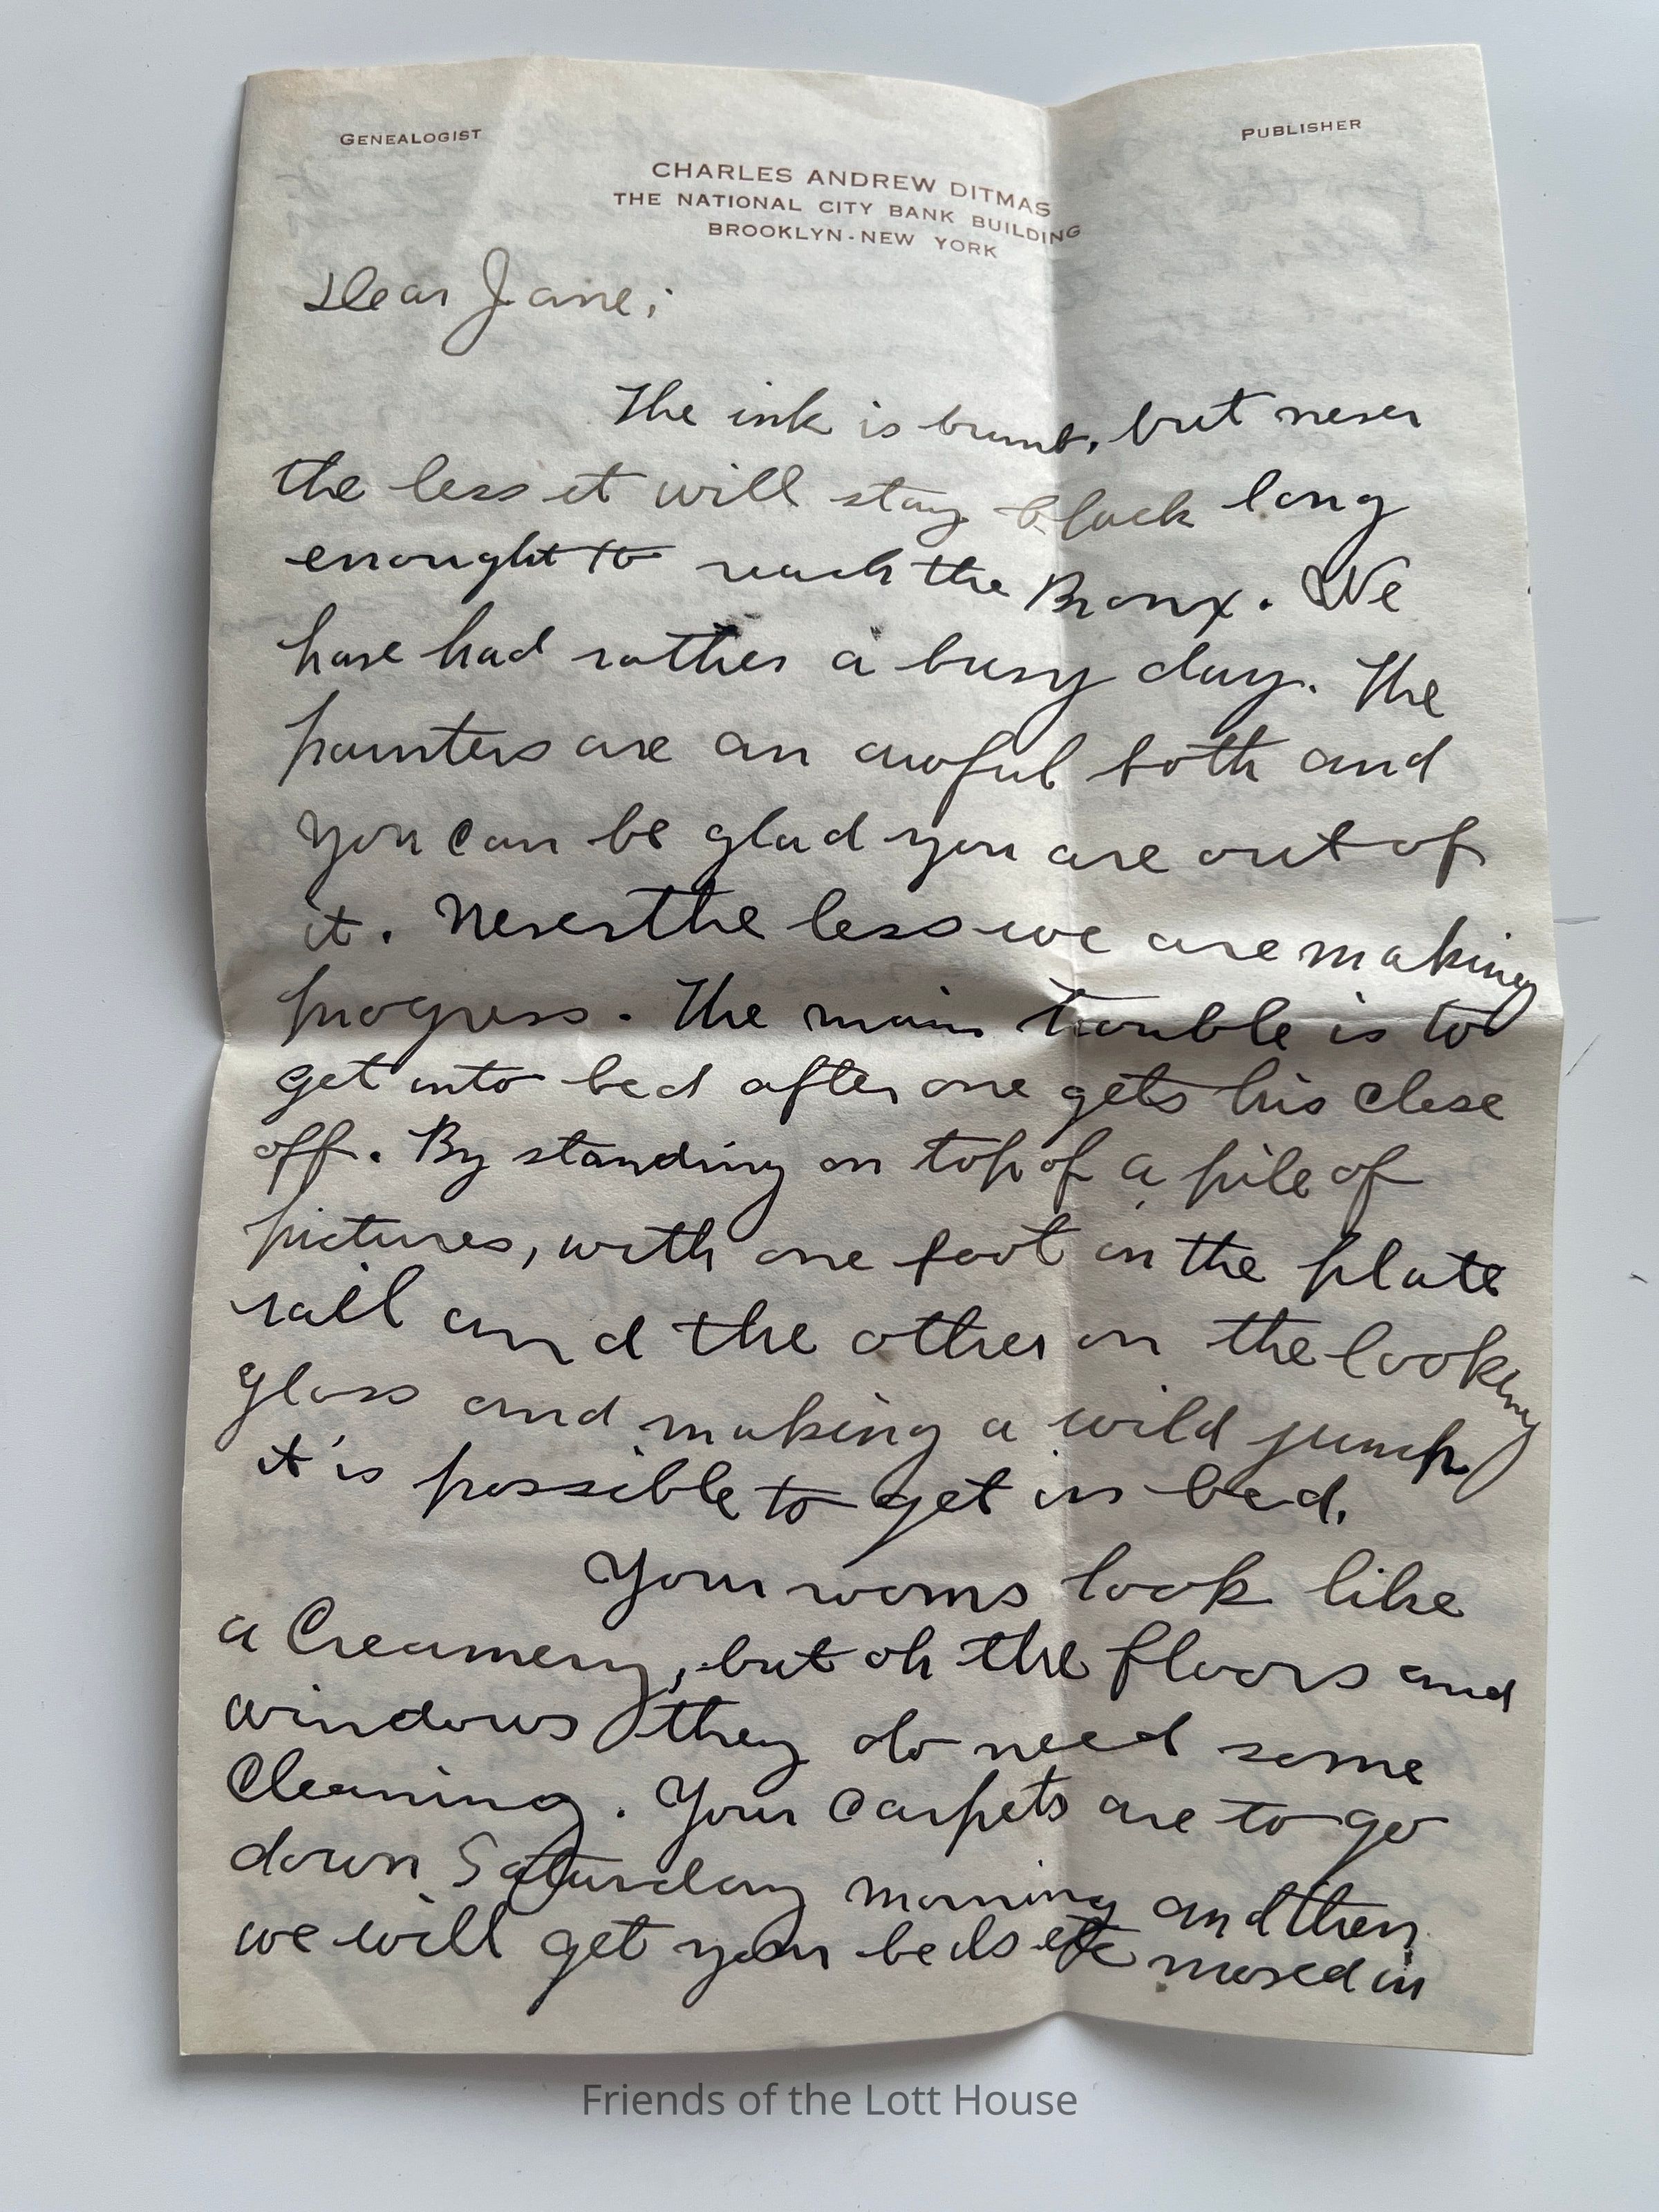 GENEALOGIST
PUBLISHER
CHARLES ANDREW DITMAS
THE NATIONAL CITY BANK BUILDING
BROOKLYN - NEW YORK
Dear Jane;
The ink is bumb, but never
the less it will stay black long
enought to reach the Bronx. We
have had rather a busy day. The
painters are an awful both and
you can be glad you are out of
it. Never the less we are making
progress. The main trouble is to
get into bed after one gets his close
off. By standing on top of a pile of
pictures, with one foot in the plate
rail and the other on the looking
glass and making a wild jump
it is possible to get in bed.
Your rooms look like
a Creamery, but oh the floors and
windows they do need some
Cleaning. Your carpets are to go
down Saturday morning and then
we will get your beds etc moved in
Friends of the Lott House